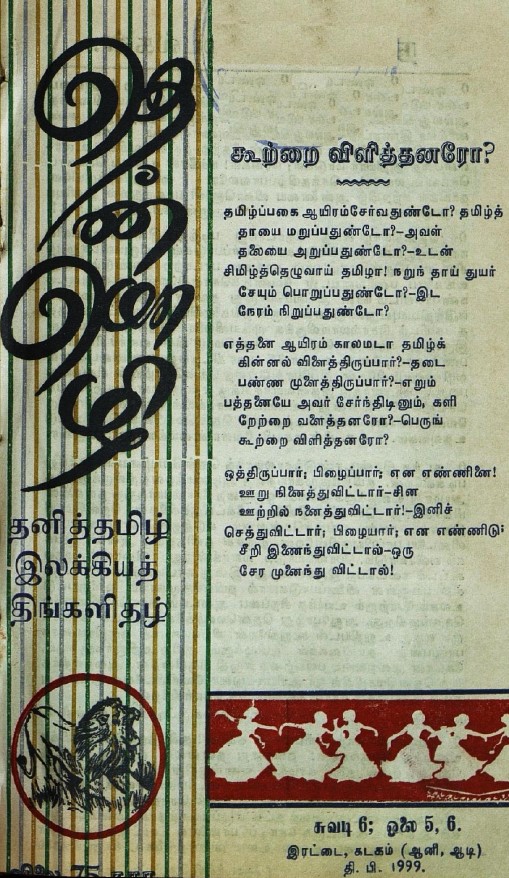 தென்மொழி
தனித்தமிழ்
இலக்கியத்
திங்களிதழ்
கூற்றை விளித்தனரோ?
தமிழ்ப்பகை ஆயிரம்சேர்வதுண்டோ? தமிழ்த்
தாயை மறுப்பதுண்டோ?-அவள்
தலையை அறுப்பதுண்டோ?-உடன்
சிமிழ்த்தெழுவாய் தமிழா! நறுந் தாய் துயர்
சேயும் பொறுப்பதுண்டோ?-இட
நேரம் நிறுப்பதுண்டோ?
எத்தனை ஆயிரம் காலமடா தமிழ்க்
கின்னல் விளைத்திருப்பார்?-தடை
பண்ண முளைத்திருப்பார்?-எறும்
பத்தனையே அவர் சேர்ந்திடினும், களி
றேற்றை வளைத்தனரோ?-பெருங்
கூற்றை விளித்தனரோ?
ஒத்திருப்பார்; பிழைப்பார்; என எண்ணினை!
ஊறு நினைத்துவிட்டார்-சின
ஊற்றில் நனைத்துவிட்டார்!-இனிச்
செத்துவிட்டார்; பிழையார்; என எண்ணிடு;
சீறி இணைந்துவிட்டால்-ஒரு
சேர முனைந்து விட்டால்!
சுவடி 6; ஓலை 5, 6.
இரட்டை, கடகம் (ஆனி, ஆடி)
தி. பி. 1999.
விலை 75